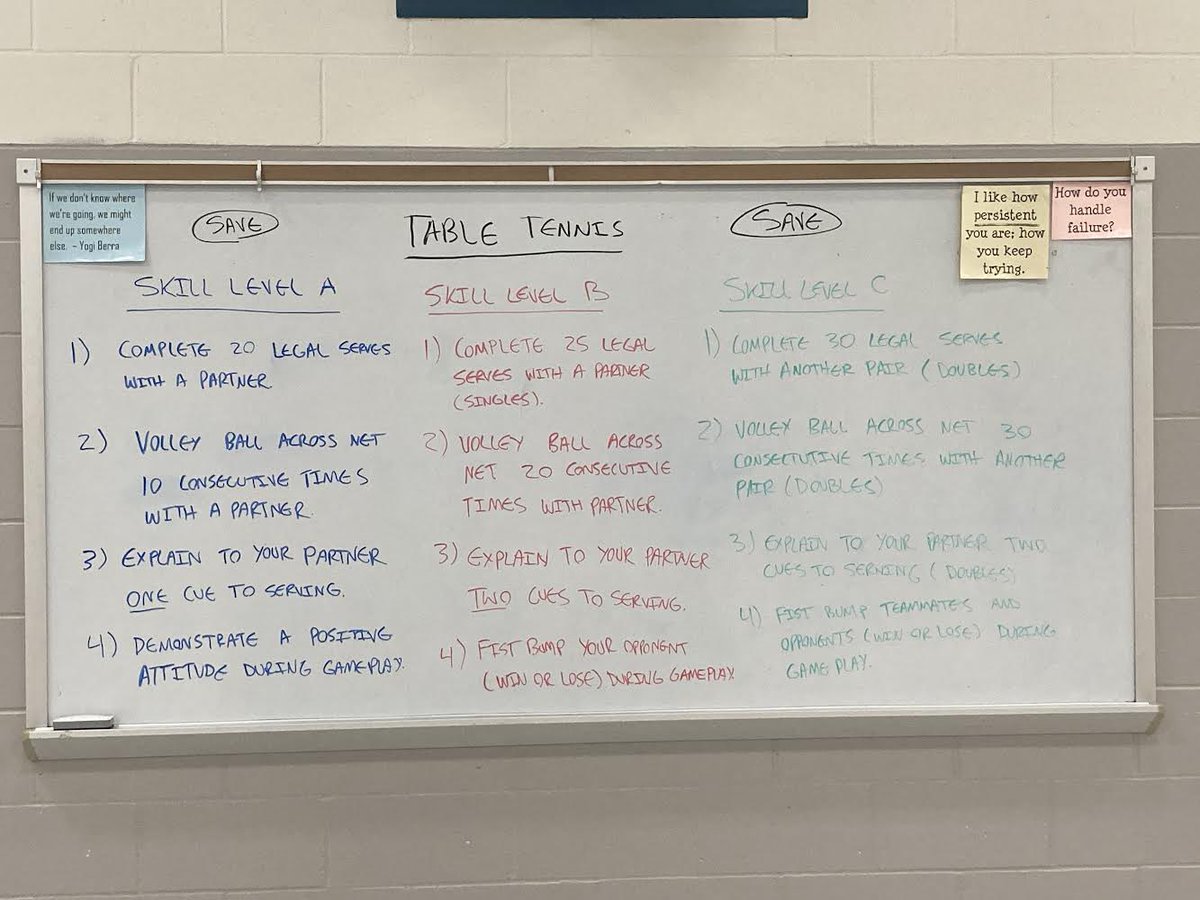 If we don't know where
we're going, we might
end up somewhere
else. - Yogi Berra
SAVE
TABLE TENNIS
SAVE
I like how
persistent
you are; how
you keep
trying.
How do you
handle
failure?
SKILL LEVEL A
1) COMPLETE 20 LEGAL SERVES
WITH A PARTNER.
2) VOLLEY BALL ACROSS NET
10 CONSECUTIVE TIMES
WITH A PARTNER.
3) EXPLAIN TO YOUR PARTNER
ONE CUE TO SERVING.
4) DEMONSTRATE A POSITIVE
ATTITUDE DURING GAMEPLAY.
SKILL LEVEL B
1) COMPLETE 25 LEGAL
SERVES WITH A PARTNER
(SINGLES).
2) VOLLEY BALL ACROSS
NET 20 CONSECUTIVE
TIMES WITH PARTNER.
3) EXPLAIN TO YOUR PARTNER
TWO CUES TO SERVING.
4) FIST BUMP YOUR OPPONENT
(WIN OR LOSE) DURING GAMEPLAY
SKILL LEVEL C
1) COMPLETE 30 LEGAL SERVES
WITH ANOTHER PAIR (DOUBLES)
2) VOLLEY BALL ACROSS NET 30
CONSECTUTIVE TIMES WITH ANOTHER
PAIR (DOUBLES)
3) EXPLAIN TO YOUR PARTNER TWO
CUES TO SERVING (DOUBLES)
4) FIST BUMP TEAMMATES AND
OPPONENTS (WIN OR LOSE) DURING
GAME PLAY.